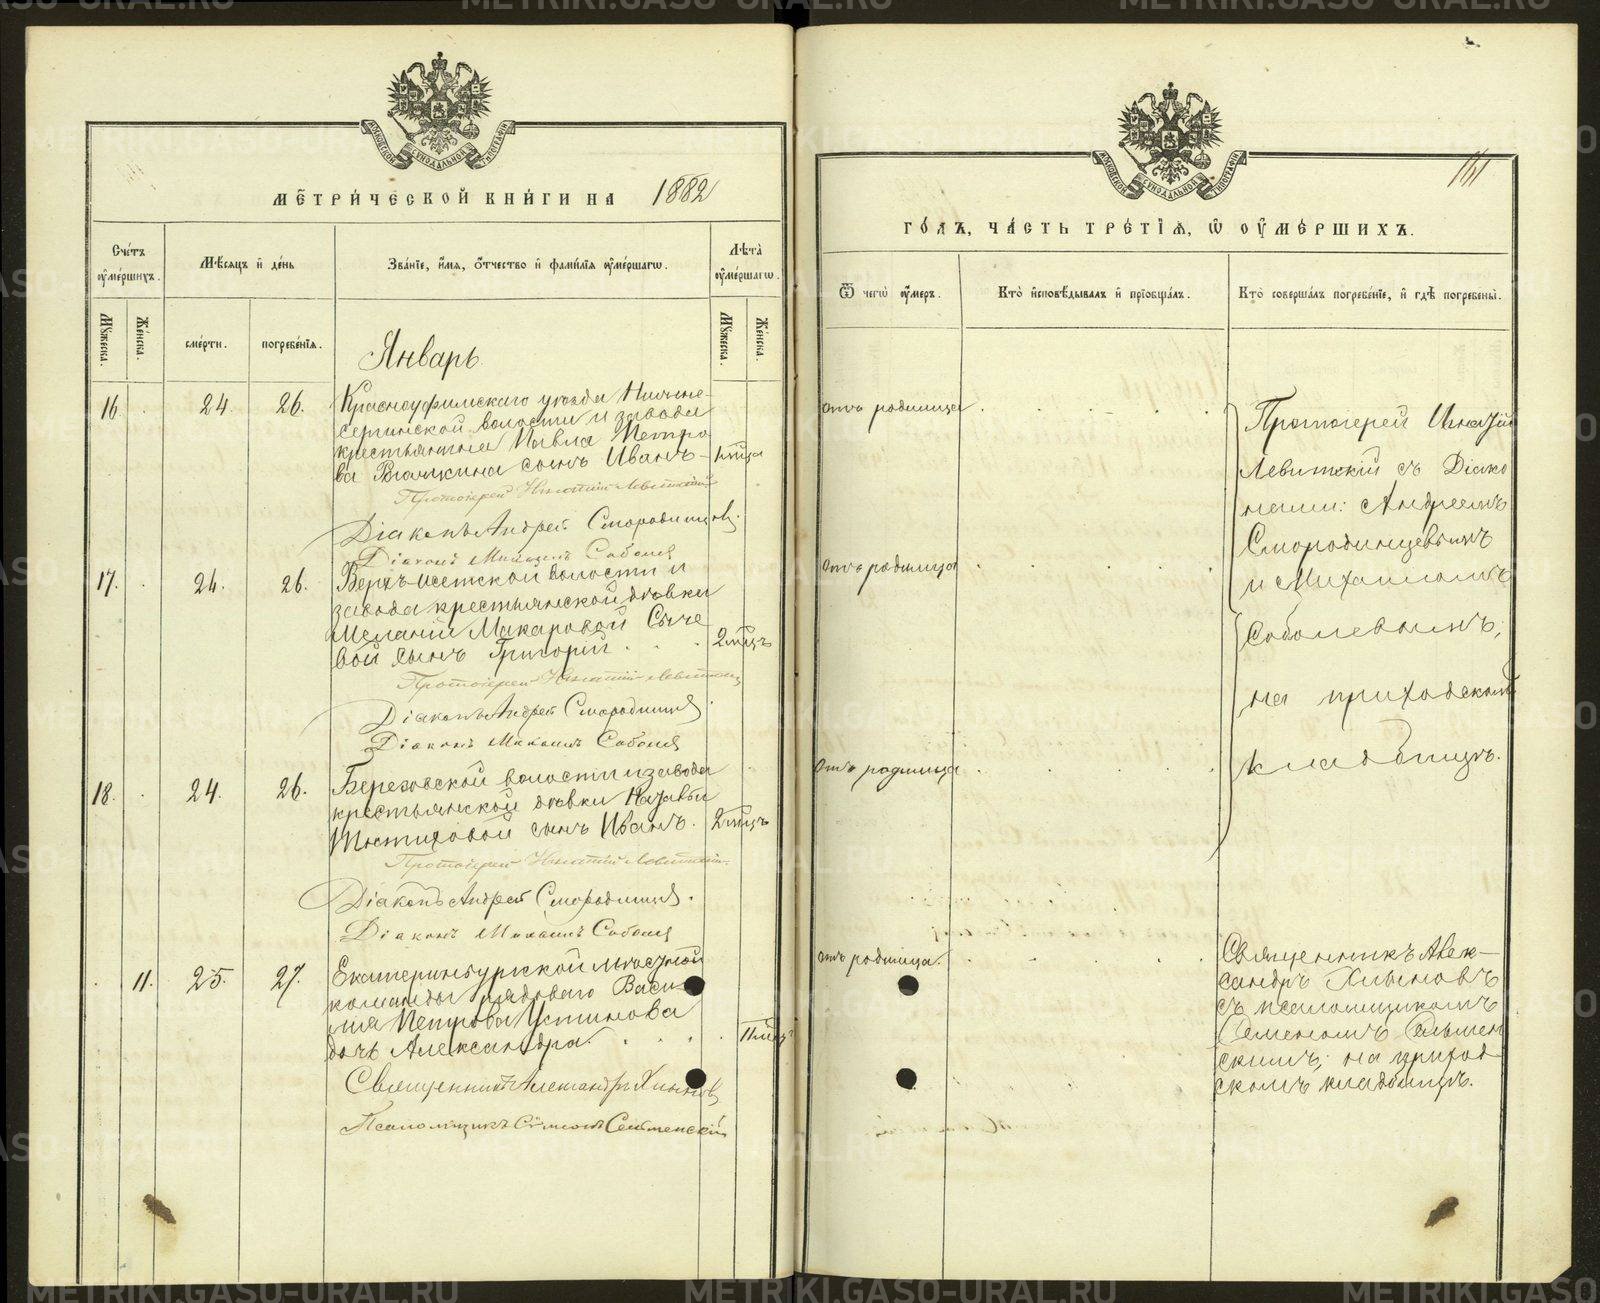 МЕТРИЧЕСКОЙ КНИГИ НА 1882
Счетъ умершихъ.
Мѣсяцъ и день
Званіе, имя, отчество и фамилія умершаго.
Лѣта умершаго.
Мужеска.
Женска.
смерти.
погребенія.
Мужеска.
Женска.
Январь
16. 24. 26. Красноуфимскаго уѣзда Нижне-
сергинской волости и завода
крестьянина Павла Петро
ва сынъ Иванъ
Протоіерей Игнатій Левитскій
Діаконъ Андрей Смородинцевъ.
Діаконъ Михаилъ Соболевъ
17. 24. 26. Верхъ-Исетской волости и
завода крестьянской дѣвки
Меланіи Макаровой Сыче
вой сынъ Григорій 2 мѣсц
Протоіерей Игнатій Левитскій
Діаконъ Андрей Смородинцевъ.
Діаконъ Михаилъ Соболевъ
18. 24. 26. Березовской волости и завода
крестьянской дѣвки
сынъ Иванъ. 2 мѣсц
Протоіерей Игнатій Левитскій.
Діаконъ Андрей Смородинцевъ.
Діаконъ Михаилъ Соболевъ
11. 25. 27. Екатеринбургской мѣстной
команды рядоваго Васи
лія Петрова Устинова
дочь Александра.
Священникъ Александръ Хлыновъ
Псаломщикъ Сельменскій
ГОДЪ, ЧАСТЬ ТРЕТІЯ, О УМЕРШИХЪ.
Отъ чего умеръ.
Кто исповѣдывалъ и пріобщалъ.
Кто совершалъ погребеніе, и гдѣ погребены.
отъ родимца
Протоіерей Игнатій
Левитскій съ Діако
нами: Андреемъ
Смородинцевымъ
и Михаиломъ
Соболевымъ;
на приходскомъ
кладбищѣ.
отъ родимца
отъ родимца
отъ родимца.
Священникъ Алек-
сандръ Хлыновъ
съ псаломщикомъ
Семеномъ Сельмен
скимъ; на приход
скомъ кладбищѣ.
МОСКОВСКОЙ СУНОДАЛЬНОЙ ТИПОГРАФІИ
МОСКОВСКОЙ СУНОДАЛЬНОЙ ТИПОГРАФІИ
METRIKI.GASO-URAL.RU